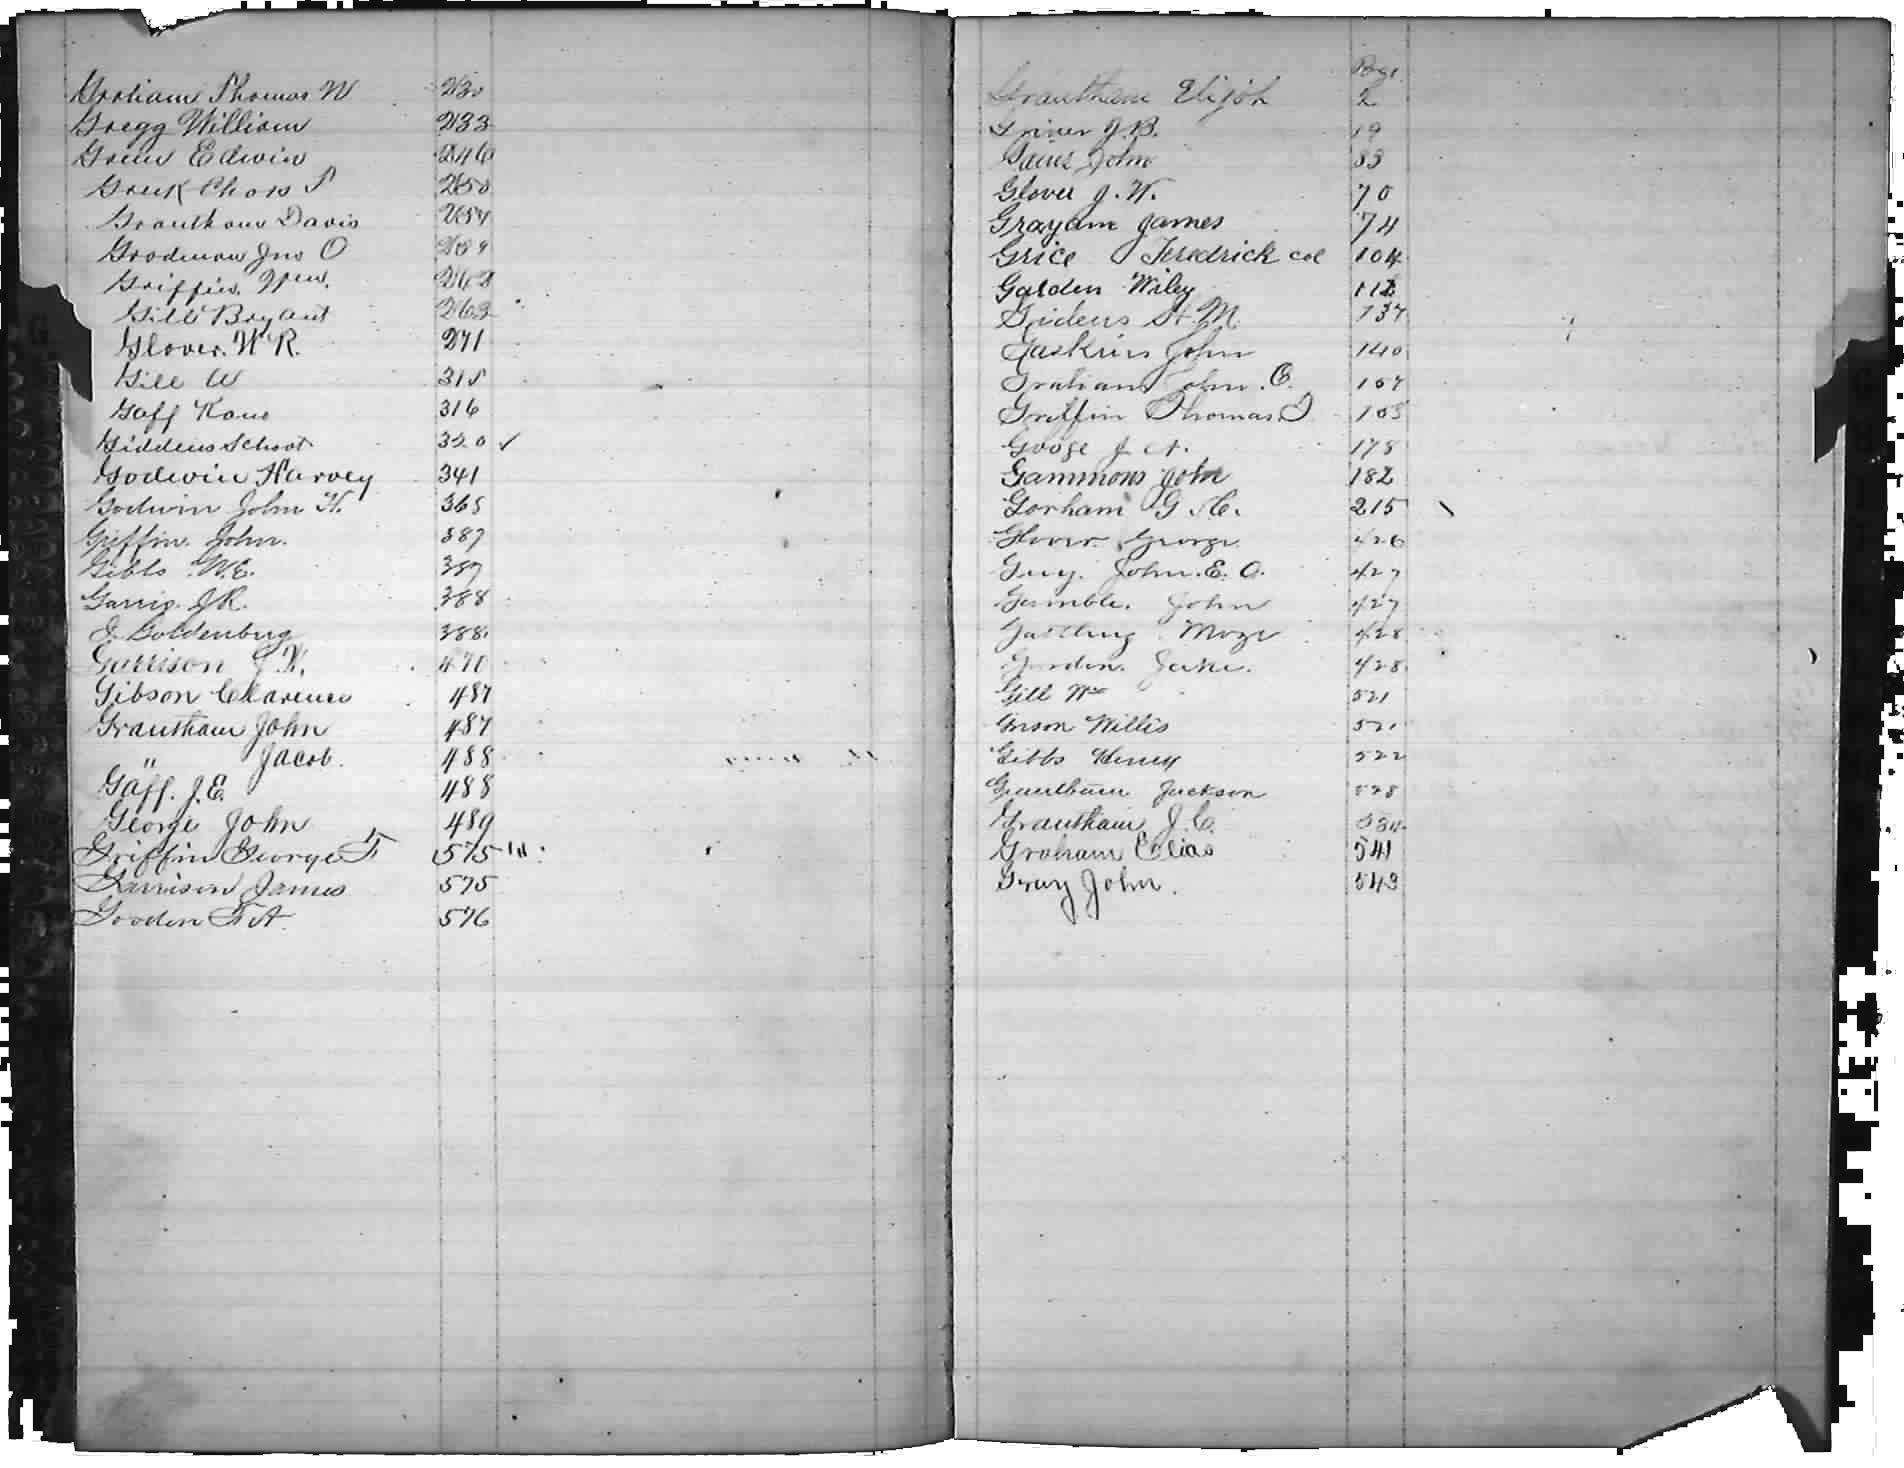 Graham Thomas W 230
Gregg William 233
Green Edwin 246
Greek Chars P 250
Grantham Davis 254
Goodman Jno O
Griffin Wm. 262
Gill Bryant 263
Glover W R. 271
Gill W 315
Gaff Kane 316
Giddens School 320 ✓
Godwin Harvey 341
Godwin John H. 365
Griffin. John. 387
Gibbs W.E. 387
Garris. J.R. 388
I. Goldenburg 388
Garrison J. K. 470
Gibson Clarence 487
Grantham John 487
" Jacob. 488
Gaff. J.E. 488
George John 489
Griffin George F 575
Garrison James 575
Gooden F A. 576
Page
Grantham Elijah 2
Griner J.B. 19
John
Glover J. W. 70
Grayam James 74
Grice Feredrick col 104
Galden Wiley 112
Gidens H. M. 137
Gaskins John 140
Graham John. C. 157
Griffin Thomas
Goose J. A. 178
Gammons John 182
Gorham G. C. 215
Glover George 426
Guy. John. E. O. 427
Gamble. John 427
Gastling Moze 428
Gordon. Jake. 428
Gill Wm 521
Willis 521
Gibbs Henry 522
Grantham Jackson 528
Grantham J. C. 534
Graham Elias 541
Gray John. 543